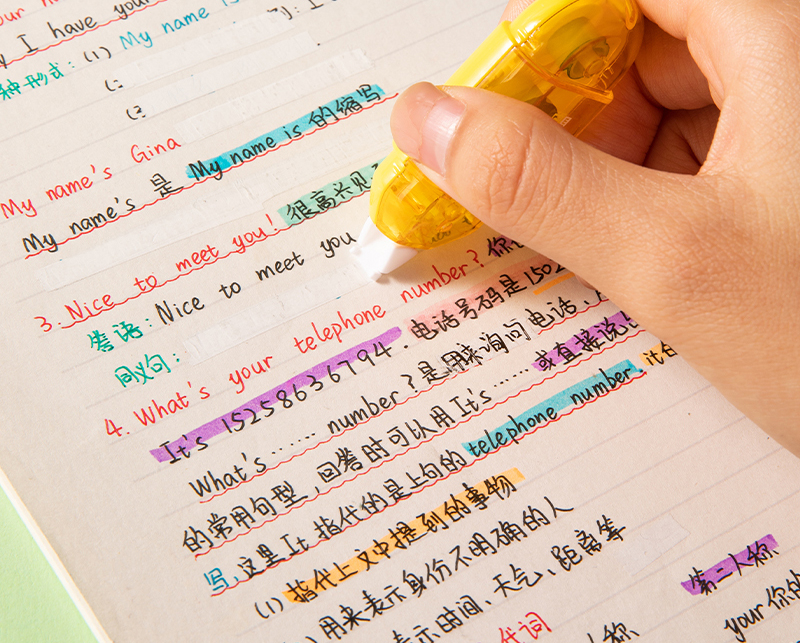 y I have your
种形式：(1) My name is
(2
(3
My name's Gina
My name's 是 My name is 的缩写
3. Nice to meet you! 很高兴见
答语：Nice to meet you
同义句：
4. What's your telephone number? 你
It's 15258636794. 电话号码是 1502
What's …… number? 是用来询问电话、
的常用句型，回答时可认用 It's …… 或直接说
写，这里It 指代的是上句的 telephone number. it
(1) 指代上文中提到的事物
用来表示身份不明确的人
表示时间、天气、距离等
第二人称
代词
人称
your 你的